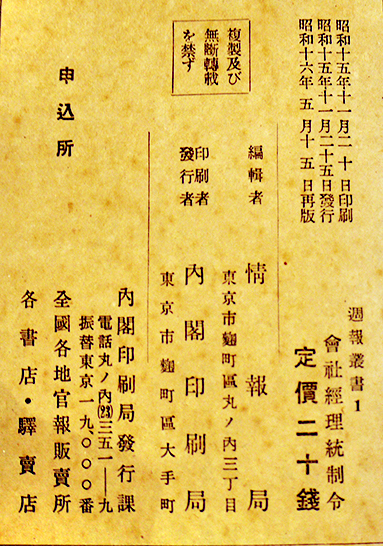 昭和十五年十一月二十日印刷
昭和十五年十一月二十五日發行
昭和十六年五月十五日再版
週報叢書1
會社經理統制令
定價二十錢
複製及び
無斷轉載
を禁ず
編輯者 情報局
東京市麴町區丸ノ內三丁目
印刷者
發行者 內閣印刷局
東京市麴町區大手町
申込所
內閣印刷局發行課
電話丸ノ內(23)三五一一九
振替東京一九、〇〇〇番
全國各地官報販賣所
各書店・驛賣店